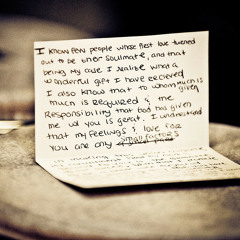 I know few people whose first love turned
out to be their soulmate, and that
being my case I realize what a
wonderful gift I have recieved
I also know that to whom much is given
much is required & the
Responsibility that God has given
me w/ you is great. I understand
that my feelings & love for
you are only small factors